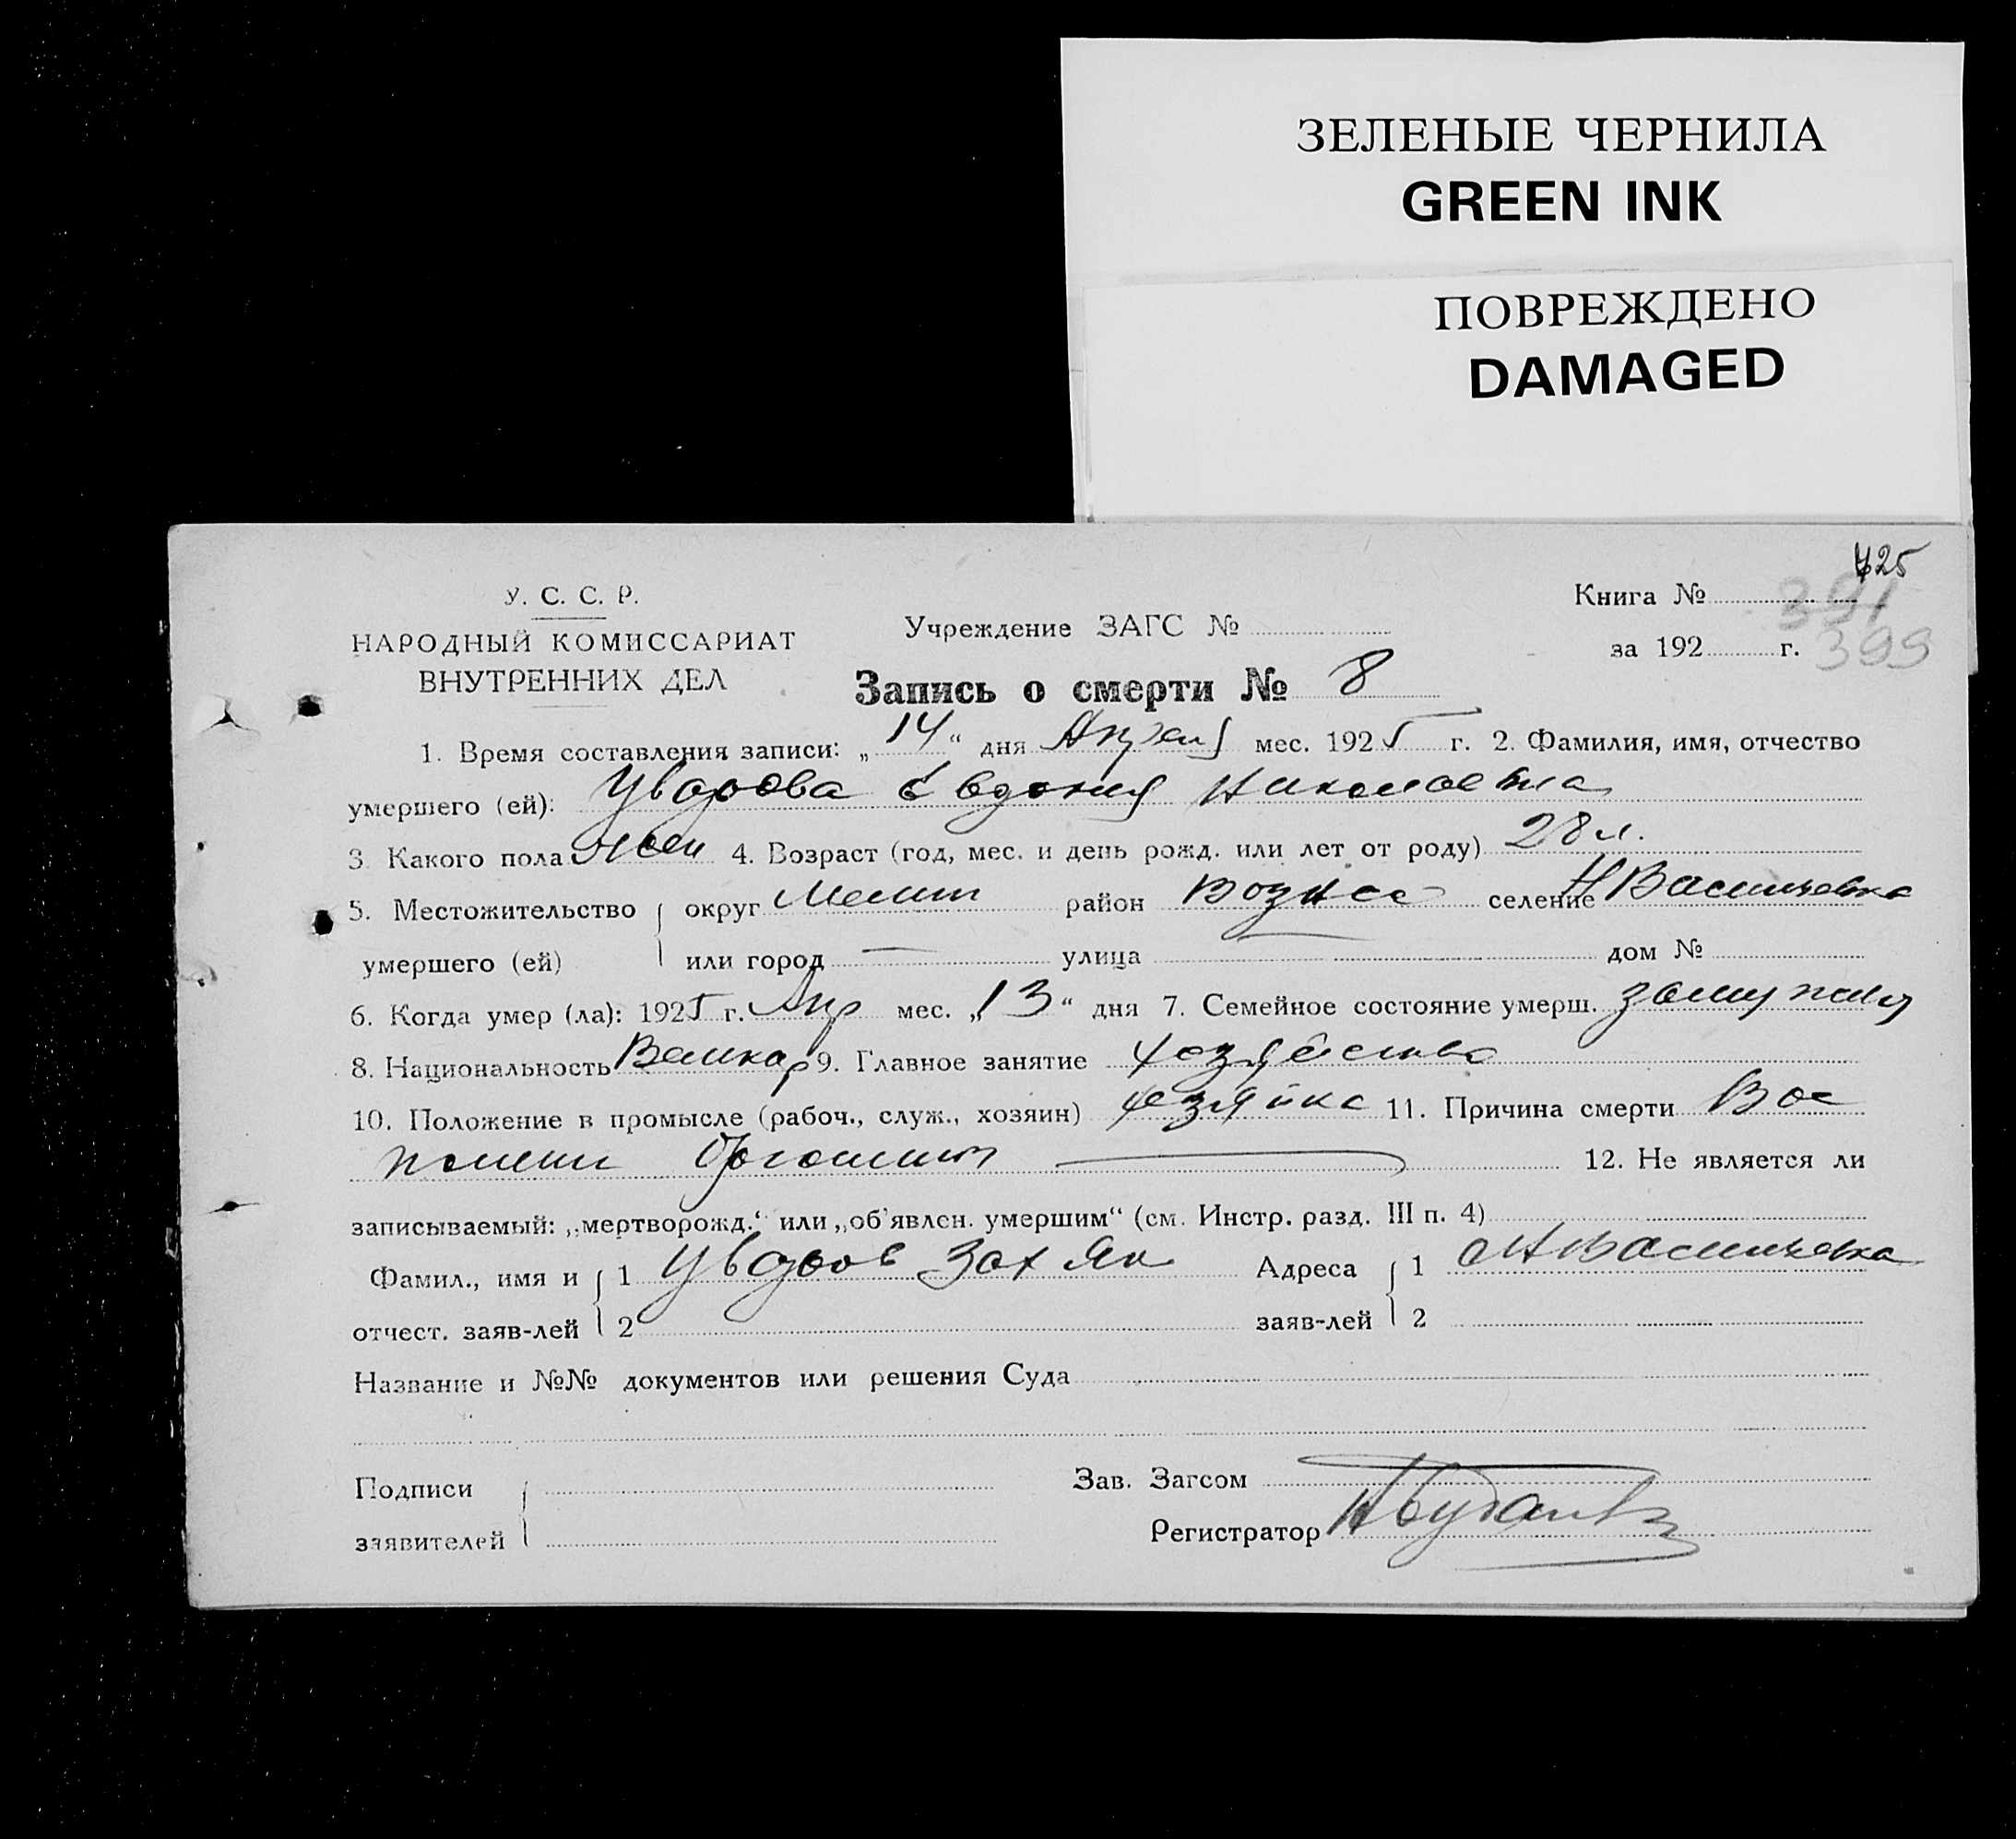 ЗЕЛЕНЫЕ ЧЕРНИЛА
GREEN INK
ПОВРЕЖДЕНО
DAMAGED
725
У. С. С. Р.
НАРОДНЫЙ КОМИССАРИАТ
ВНУТРЕННИХ ДЕЛ
Учреждение ЗАГС №
Книга № 391
за 192 г. 399
Запись о смерти № 8
1. Время составления записи: „14“ дня Апреля мес. 1925 г. 2. Фамилия, имя, отчество
умершего (ей): Уварова Евдокия Николаевна
3. Какого пола жен 4. Возраст (год, мес. и день рожд. или лет от роду) 28 л.
5. Местожительство округ Мелит район Вознес селение Н Васильевка
умершего (ей) или город — улица — дом №
6. Когда умер (ла): 1925 г. Апр мес. „13“ дня 7. Семейное состояние умерш. замужняя
8. Национальность Великор 9. Главное занятие хозяйство
10. Положение в промысле (рабоч., служ., хозяин) хозяйка 11. Причина смерти Вос
12. Не является ли
записываемый: „мертворожд.“ или „об'явлен. умершим“ (см. Инстр. разд. III п. 4)
Фамил., имя и 1 Уваров Зах Як Адреса 1 Н Васильевка
отчест. заяв-лей 2 заяв-лей 2
Название и №№ документов или решения Суда
Подписи Зав. Загсом
заявителей Регистратор